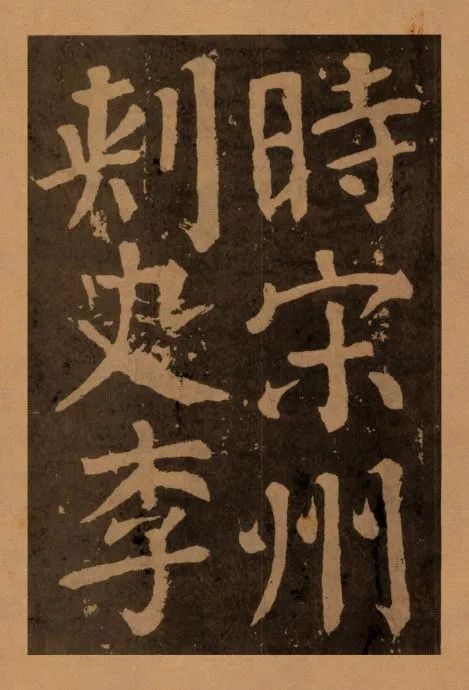 時宋州
刺史李